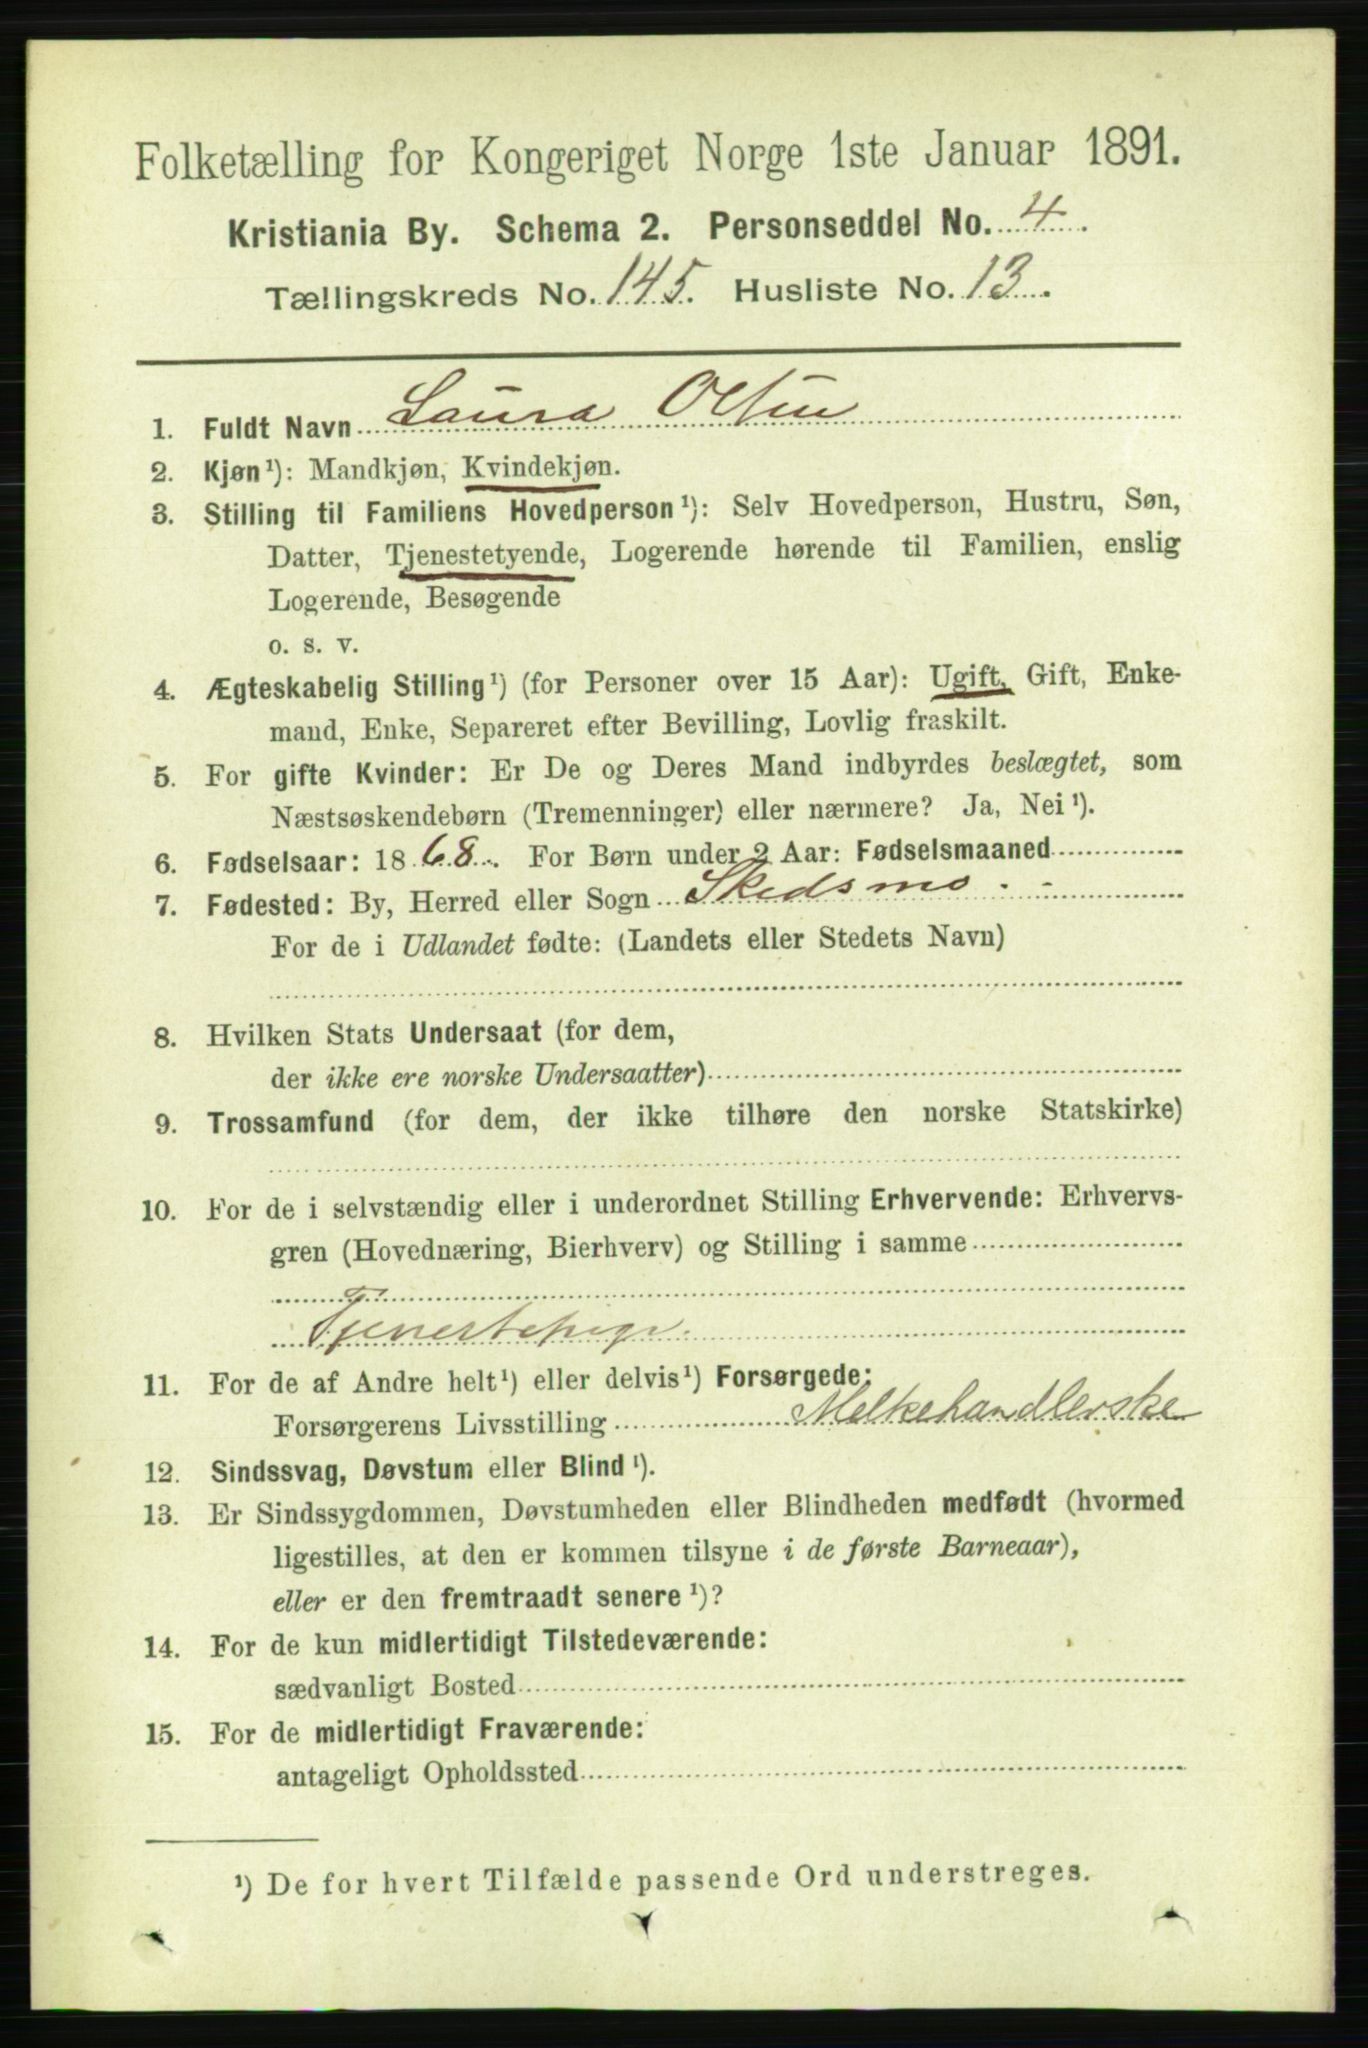 Folketælling for Kongeriget Norge 1ste Januar 1891.
Kristiania By. Schema 2. Personseddel No. 4.
Tællingskreds No. 145. Husliste No. 13.
1. Fuldt Navn Laura Olsen
2. Kjøn¹): Mandkjøn, Kvindekjøn.
3. Stilling til Familiens Hovedperson¹): Selv Hovedperson, Hustru, Søn,
Datter, Tjenestetyende, Logerende hørende til Familien, enslig
Logerende, Besøgende
o. s. v.
4. Ægteskabelig Stilling¹) (for Personer over 15 Aar): Ugift, Gift, Enke-
mand, Enke, Separeret efter Bevilling, Lovlig fraskilt.
5. For gifte Kvinder: Er De og Deres Mand indbyrdes beslægtet, som
Næstsøskendebørn (Tremenninger) eller nærmere? Ja, Nei¹).
6. Fødselsaar: 1868. For Børn under 2 Aar: Fødselsmaaned
7. Fødested: By, Herred eller Sogn Skedsmo.
For de i Udlandet fødte: (Landets eller Stedets Navn)
8. Hvilken Stats Undersaat (for dem,
der ikke ere norske Undersaatter)
9. Trossamfund (for dem, der ikke tilhøre den norske Statskirke)
10. For de i selvstændig eller i underordnet Stilling Erhvervende: Erhvervs-
gren (Hovednæring, Bierhverv) og Stilling i samme
Tjenestepige.
11. For de af Andre helt¹) eller delvis¹) Forsørgede:
Forsørgerens Livsstilling Melkehandlerske
12. Sindssvag, Døvstum eller Blind¹).
13. Er Sindssygdommen, Døvstumheden eller Blindheden medfødt (hvormed
ligestilles, at den er kommen tilsyne i de første Barneaar),
eller er den fremtraadt senere¹)?
14. For de kun midlertidigt Tilstedeværende:
sædvanligt Bosted
15. For de midlertidigt Fraværende:
antageligt Opholdssted
¹) De for hvert Tilfælde passende Ord understreges.